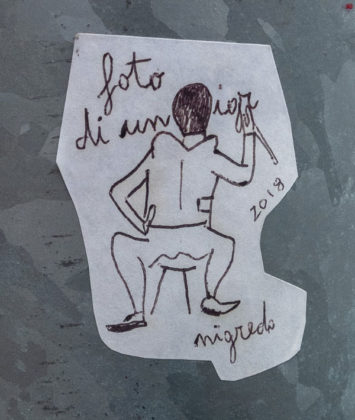 foto
di un
2018
nigredo